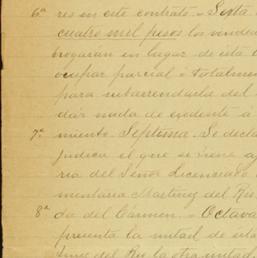 6ª res en este contrato. - Sexta
cuatro mil pesos los vended
hogarán en lugar de esta c
ocupar parcial o totalmen
para subarrendarla del
dar nada de
7ª miento. Septima. Se decla
judica el que se viene a
ria del Señor Licenciado
mentaria Martinez del Rio
8ª da del Cármen. - Octava
presenta la mitad de esta
del Rio la otra mitad